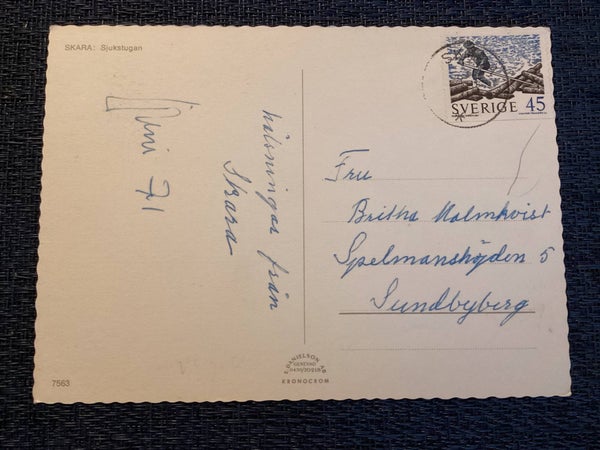 SKARA: Sjukstugan
Juni 71
hälsningar från
Skara
SVERIGE 45
Fru
Britha Malmkvist
Spelmanshöjden 5
Sundbyberg
E. DANIELSON AB
KRONOCROM
7563